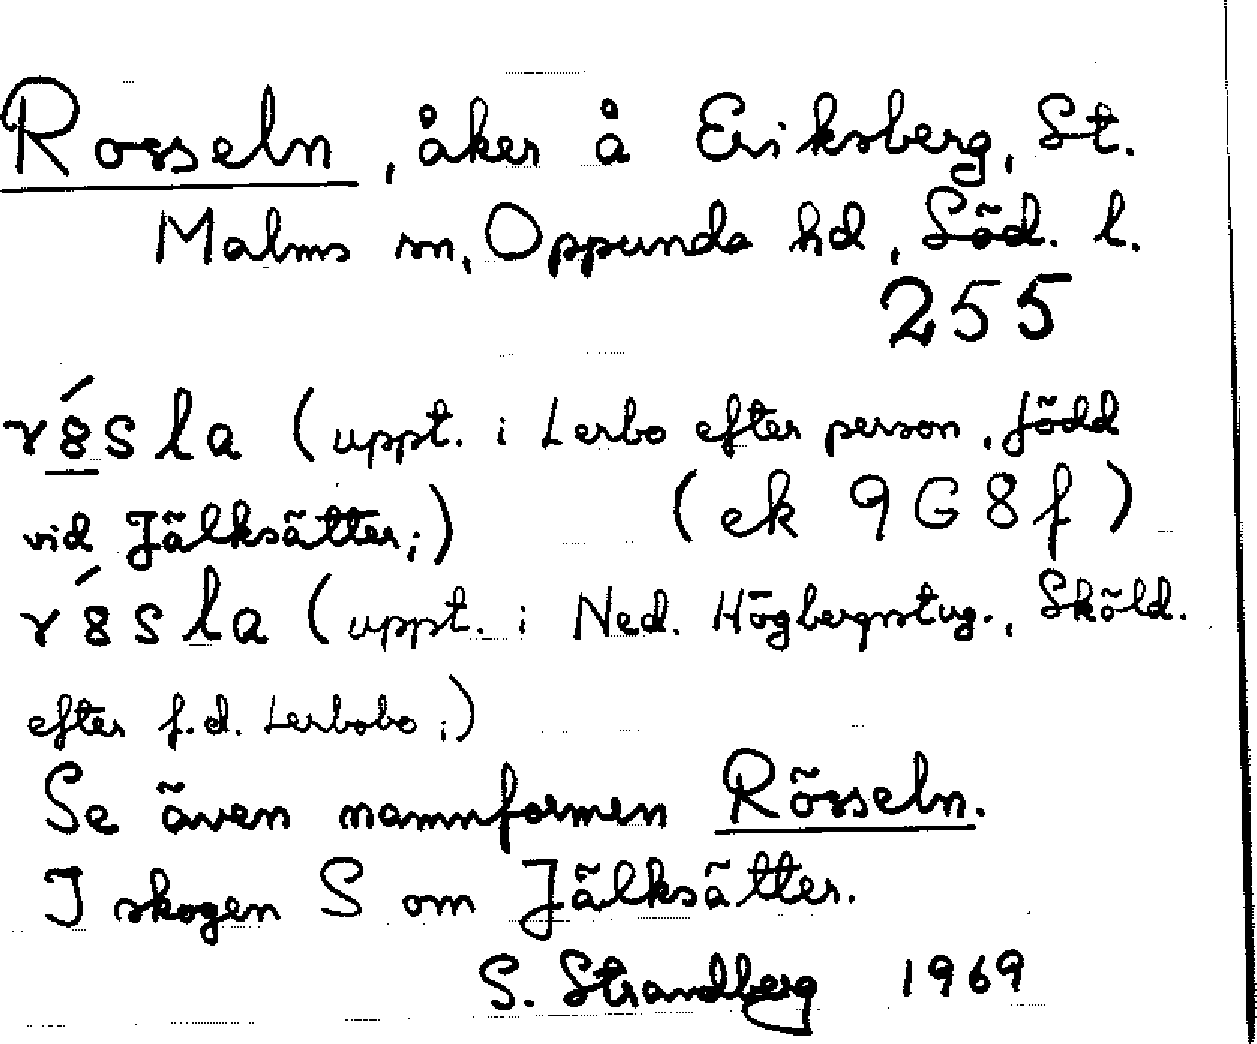 Rosseln, åker å Eriksberg, St.
Malms sn, Oppunda hd, Söd. l.
255
r8́sla (uppt. i Lerbo efter person, född
vid Jälksätter;) (ek 9G8f)
r8́sla (uppt. i Ned. Högbergstug., Sköld.
efter f.d. Lerbobo;)
Se även namnformen Rösseln.
I skogen S om Jälksätter.
S. Strandberg 1969